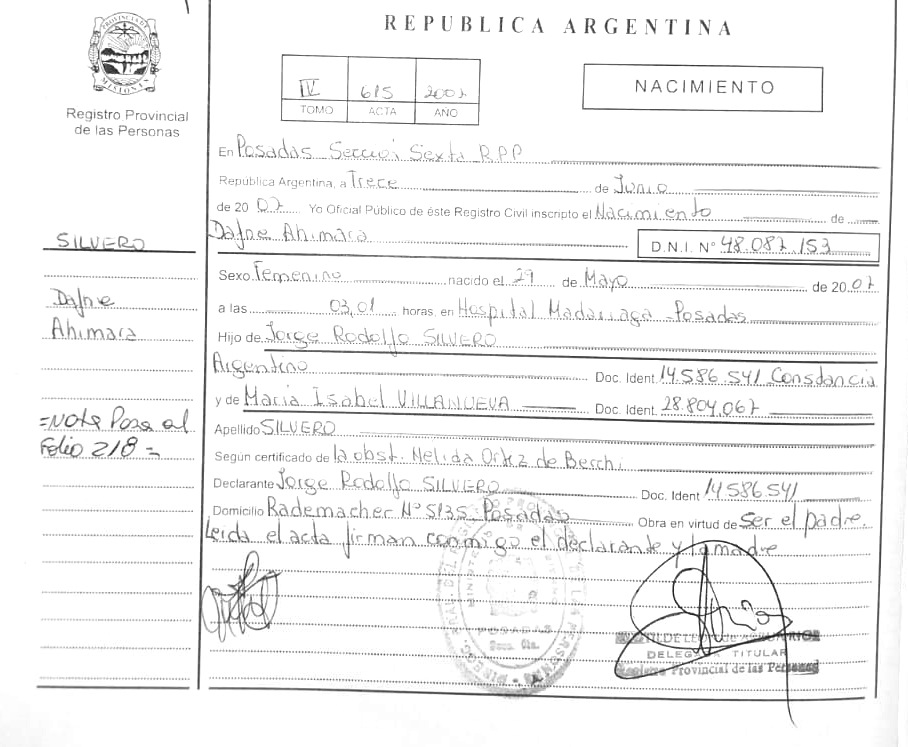 REPUBLICA ARGENTINA
PROVINCIA DE MISIONES
Registro Provincial
de las Personas
IV 615 2007
TOMO ACTA AÑO
NACIMIENTO
En Posadas Sección Sexta R.P.P
República Argentina, a Trece de Junio
de 20 07 Yo Oficial Público de éste Registro Civil inscripto el Nacimiento de
Dafne Ahimara D.N.I. Nº 48.087.153
SILVERO
Dafne
Ahimara
Sexo Femenino nacido el 29 de Mayo de 20 07
a las 03,01 horas, en Hospital Madariaga Posadas
Hijo de Jorge Rodolfo SILVERO
Argentino Doc. Ident. 14.586.541 Constancia
y de Maria Isabel VILLANUEVA Doc. Ident. 28.804.067
=Nota Pasa al
Folio 218=
Apellido SILVERO
Según certificado de la obst. Nelida Ortiz de Becchi
Declarante Jorge Rodolfo SILVERO Doc. Ident 14586541
Domicilio Rademacher Nº 5135 Posadas Obra en virtud de ser el padre.
Leida el acta firman conmigo el declarante y la madre
POSADAS
DELEGADA TITULAR
Registro Provincial de las Personas